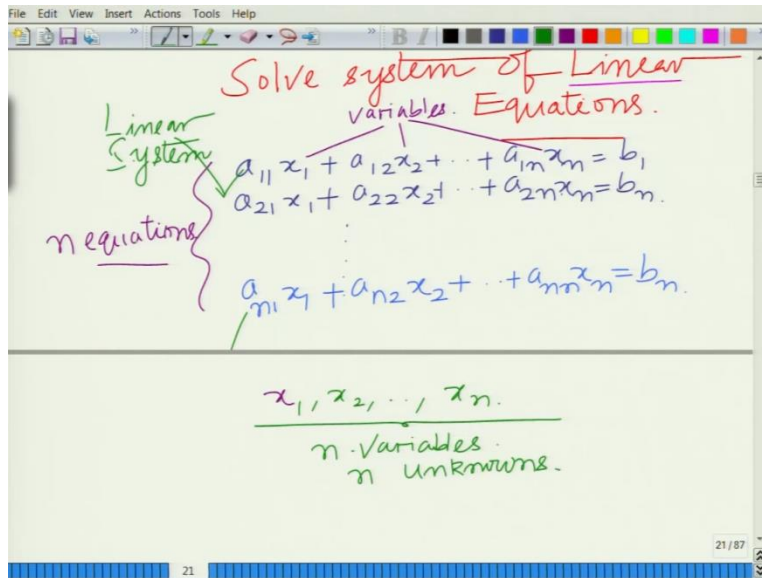 File Edit View Insert Actions Tools Help
Solve system of Linear
Equations.
variables.
Linear
System
a₁₁x₁ + a₁₂x₂ + ·· + a₁ₙxₙ = b₁
a₂₁x₁ + a₂₂x₂ + ·· + a₂ₙxₙ = bₙ.
n equations
⋮
aₙ₁x₁ + aₙ₂x₂ + ·· + aₙₙxₙ = bₙ.
x₁, x₂, ··, xₙ.
n variables.
n unknowns.
21/87
21